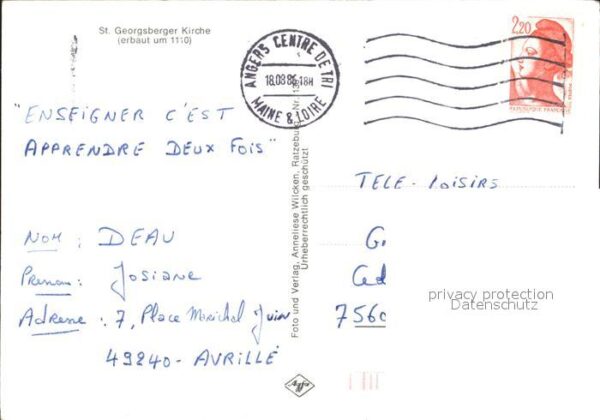 St. Georgsberger Kirche
(erbaut um 1110)
ANGERS CENTRE DE TRI
18H
MAINE & LOIRE
2,20
"ENSEIGNER C'EST
APPRENDRE DEUX FOIS"
TELE-LOISIRS
NOM : DEAU
Prenom : Josiane
Adresse : 7, Place Maréchal Juin
49240 - AVRILLÉ
G.
Ced
756
Foto und Verlag, Anneliese Wilcken, Ratzeburg
Urheberrechtlich geschützt
privacy protection
Datenschutz
Agfa